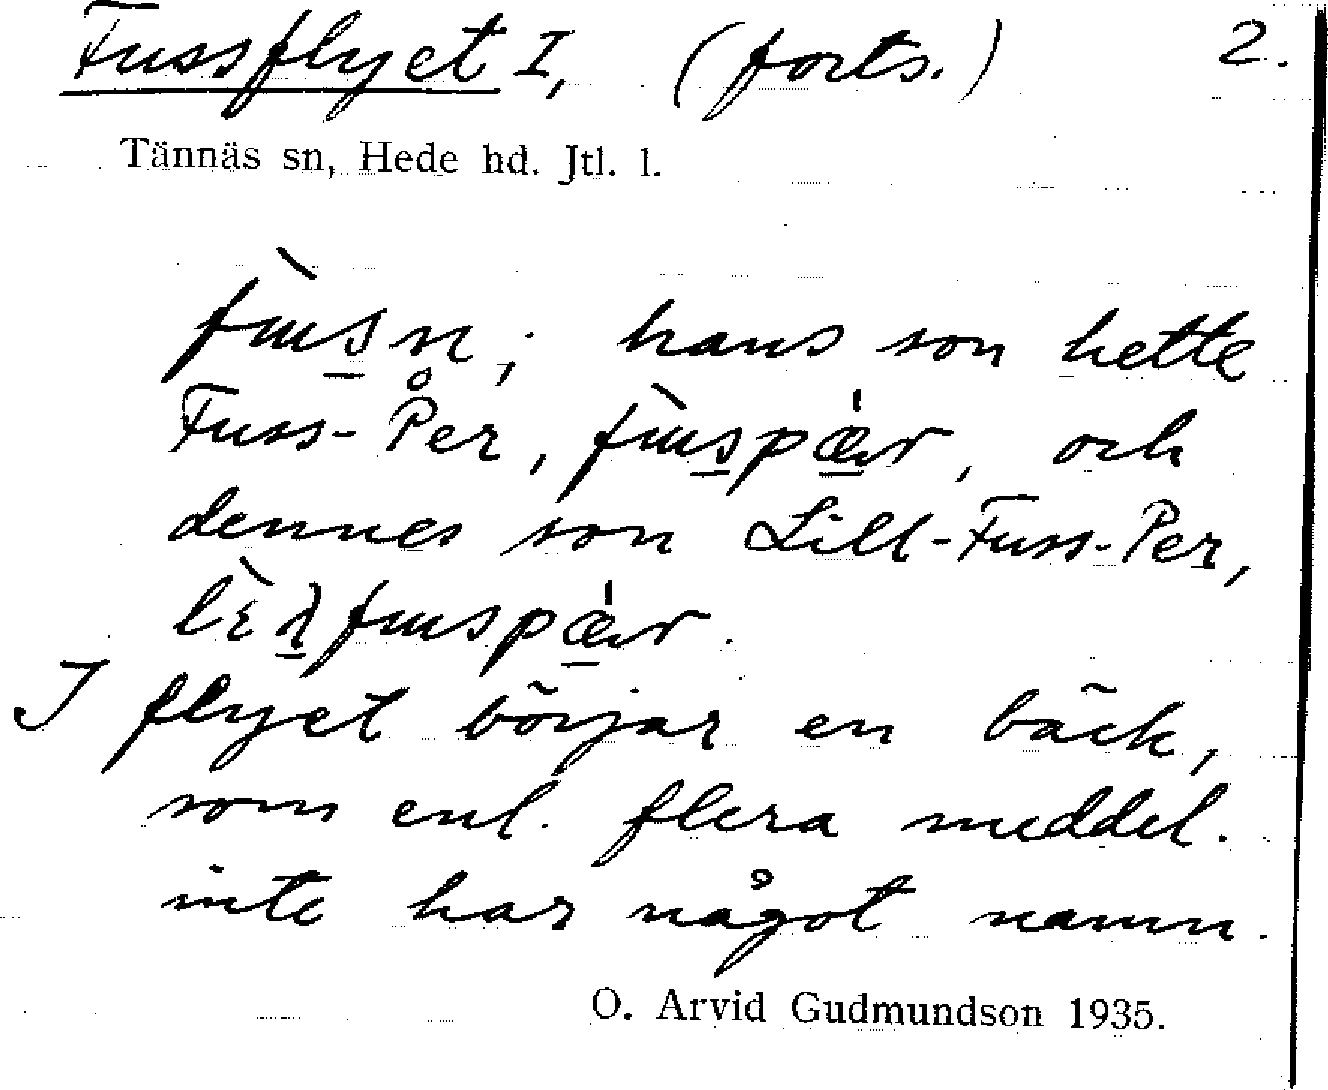 Fussflyet I, (forts.) 2.
Tännäs sn, Hede hd. Jtl. l.
fùs̲n; hans son hette
Fuss-Per, fùs̲pǽ̲r, och
dennes son Lill-Fuss-Per,
I flyet börjar en bäck,
som enl. flera meddel.
inte har något namn.
O. Arvid Gudmundson 1935.